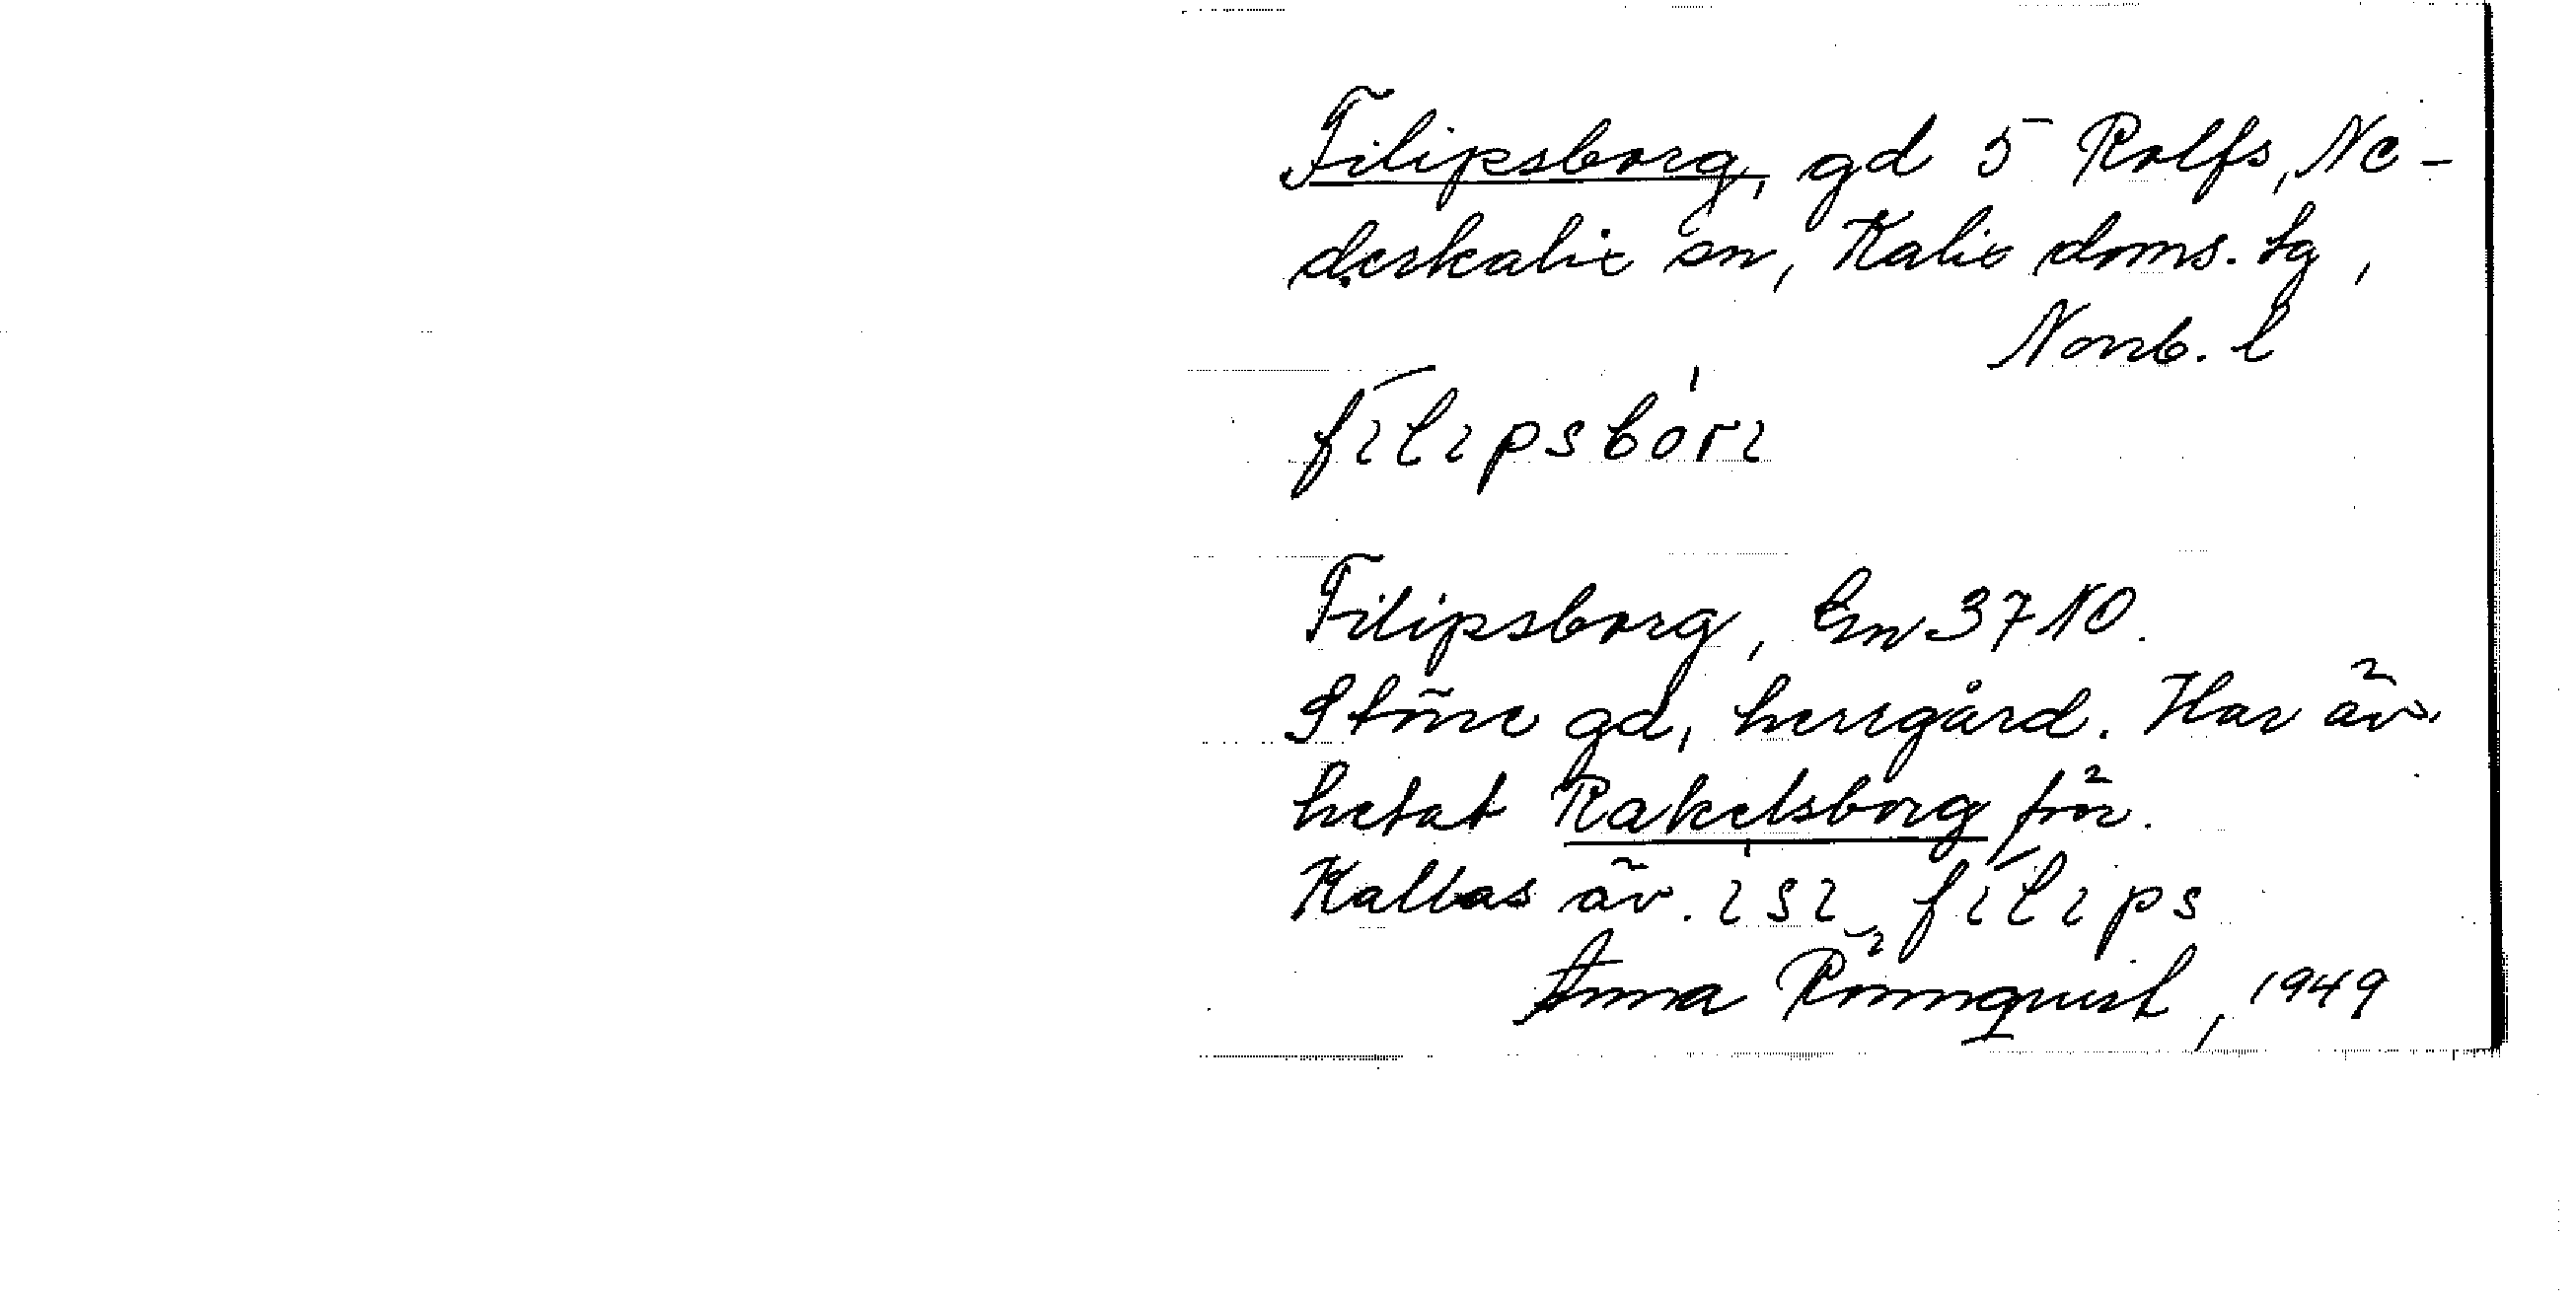 Filipsborg, gd 5 Rolfs, Ne-
derkalix sn, Kalix doms. tg,
Norrb. l
filipsbórı
Filipsborg, Em 37 NO.
Större gd, herrgård. Har äv.
hetat Rakelsborg förr.
Kallas äv. ısı filips
Anna Rönnqvist, 1949